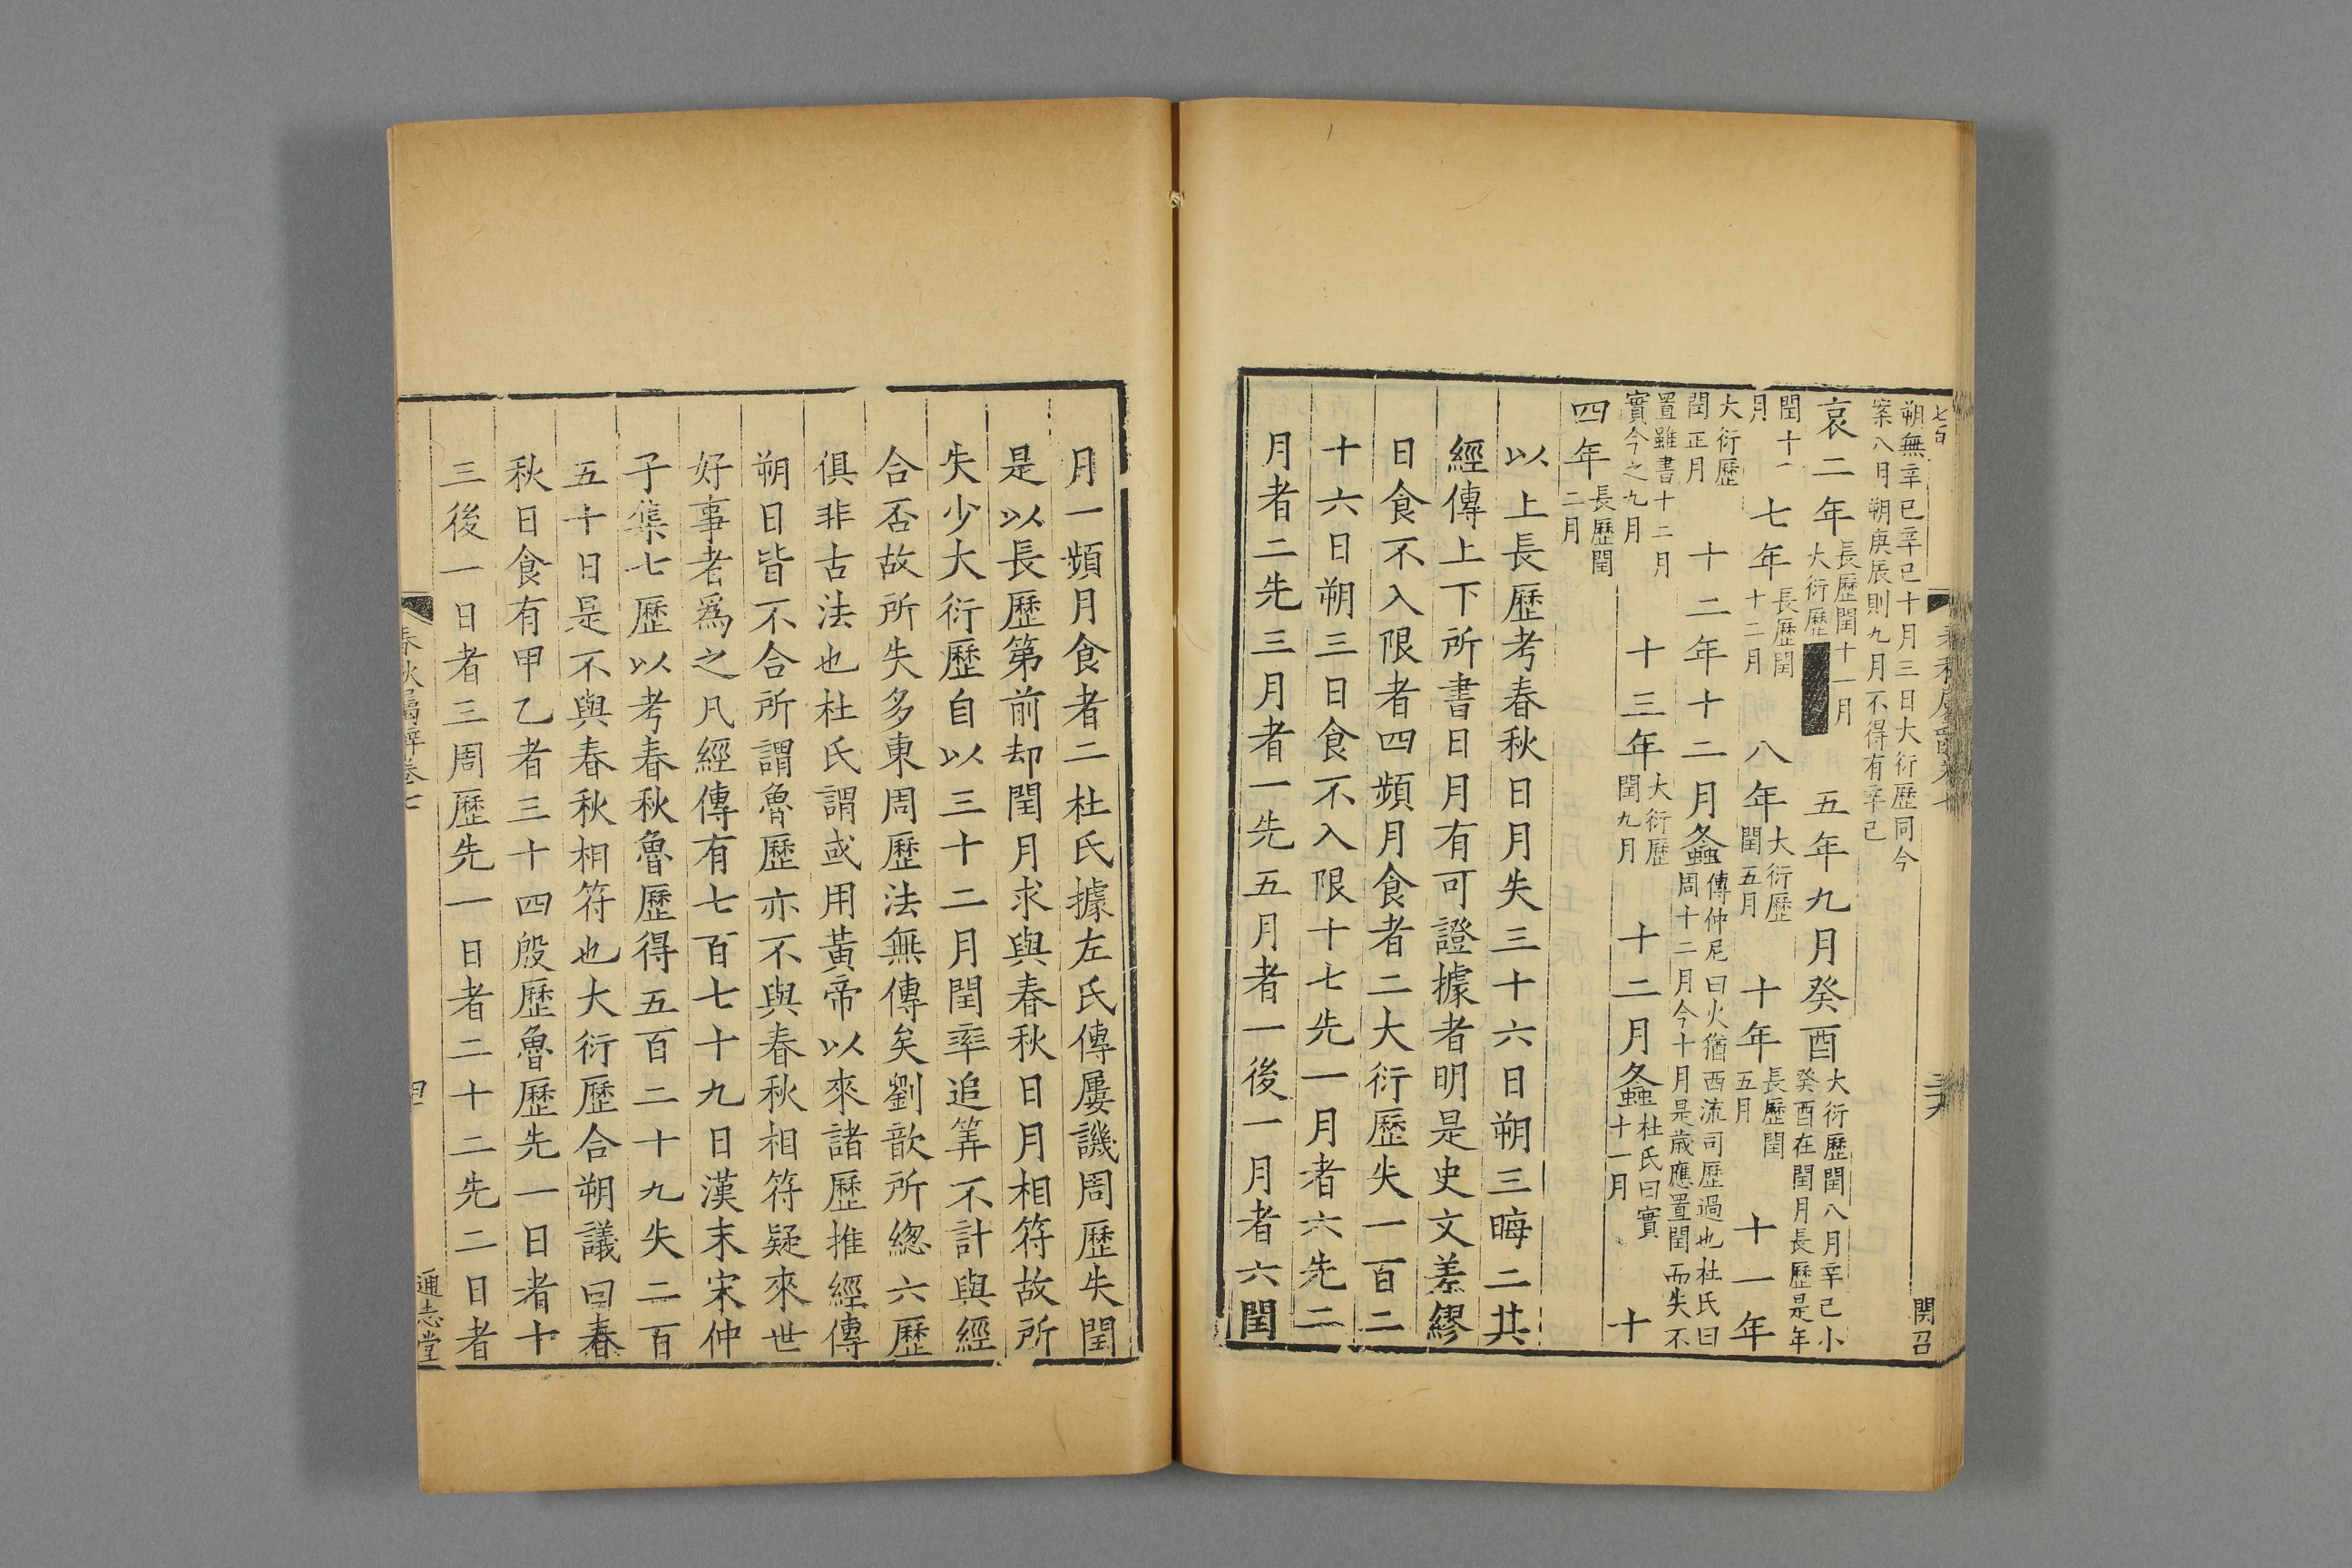 朔無辛巳辛巳十月三日大衍歷同今
案八月朔庚辰則九月不得有辛巳
哀二年長歷閏十一月大衍歷 五年九月癸酉大衍歷閏八月辛巳小癸酉在閏月長歷是年
閏十一月 七年長歷閏十二月 八年大衍歷閏五月 十年長歷閏五月 十一年
大衍歷閏正月 十二年十二月螽傳仲尼曰火猶西流司歷過也杜氏曰周十二月今十月是歲應置閏而失不
置雖書十二月實今之九月 十三年大衍歷閏九月 十二月螽杜氏曰實十一月 十
四年長歷閏二月
以上長歷考春秋日月失三十六日朔三晦二其
經傳上下所書日月有可證據者明是史文差繆
日食不入限者四頻月食者二大衍歷失一百二
十六日朔三日食不入限十七先一月者六先二
月者二先三月者一先五月者一後一月者六閏
月一頻月食者二杜氏據左氏傳屢譏周歷失閏
是以長歷第前却閏月求與春秋日月相符故所
失少大衍歷自以三十二月閏率追筭不計與經
合否故所失多東周歷法無傳矣劉歆所緫六歷
俱非古法也杜氏謂或用黃帝以來諸歷推經傳
朔日皆不合所謂魯歷亦不與春秋相符疑來世
好事者爲之凡經傳有七百七十九日漢末宋仲
子集七歷以考春秋魯歷得五百二十九失二百
五十日是不與春秋相符也大衍歷合朔議曰春
秋日食有甲乙者三十四殷歷魯歷先一日者十
三後一日者三周歷先一日者二十二先二日者
通志堂